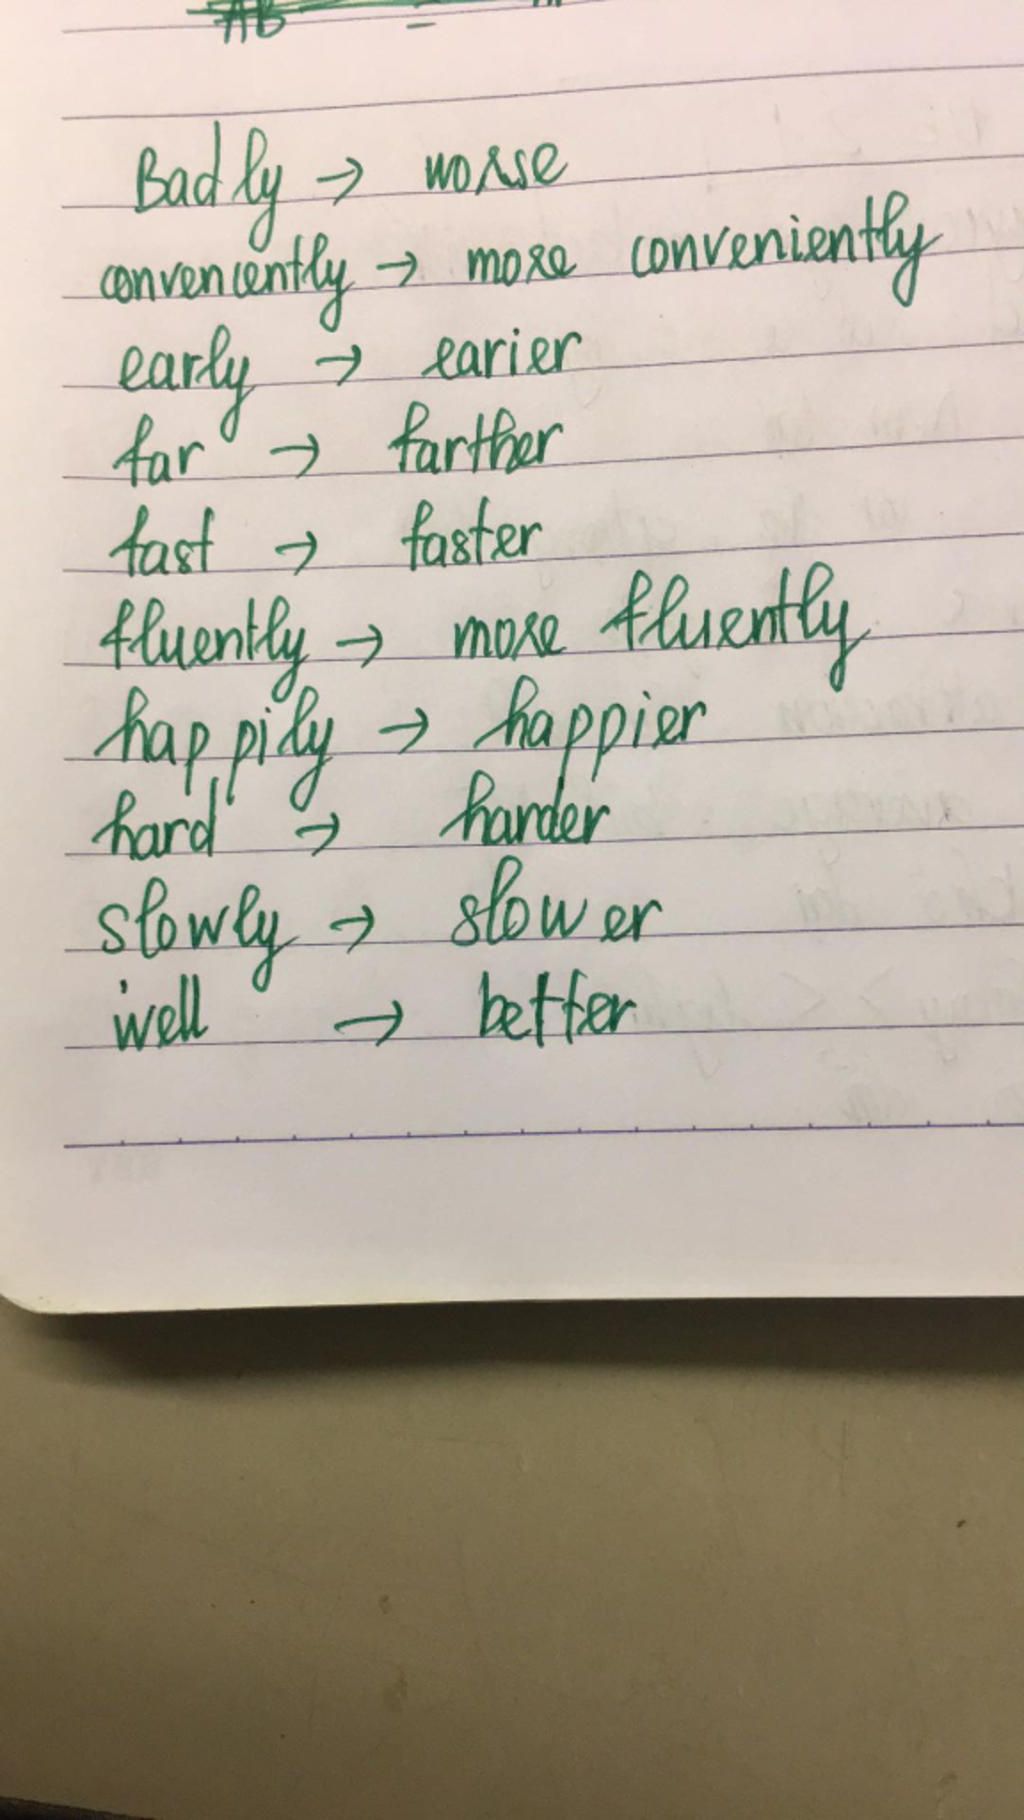 AB
Badly → worse
conveniently → more conveniently
early → earier
far → farther
fast → faster
fluently → more fluently
happily → happier
hard → harder
slowly → slower
well → better